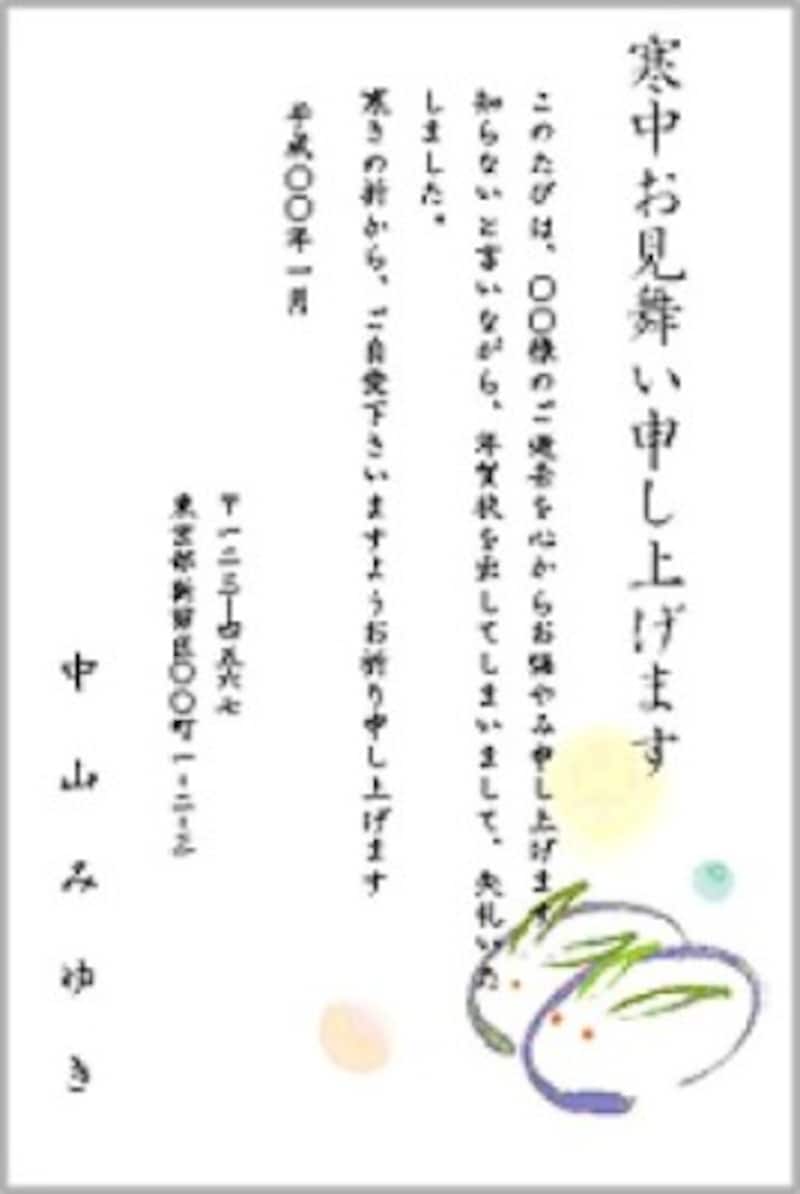 寒中お見舞い申し上げます
このたびは、〇〇様のご逝去を心からお悔やみ申し上げます
知らないと言いながら、年賀状を出してしまいまして、失礼いた
しました。
寒さの折から、ご自愛下さいますようお祈り申し上げます
平成〇〇年一月
〒一二三ー四五六七
東京都新宿区〇〇町一ー二ー三
中山みゆき